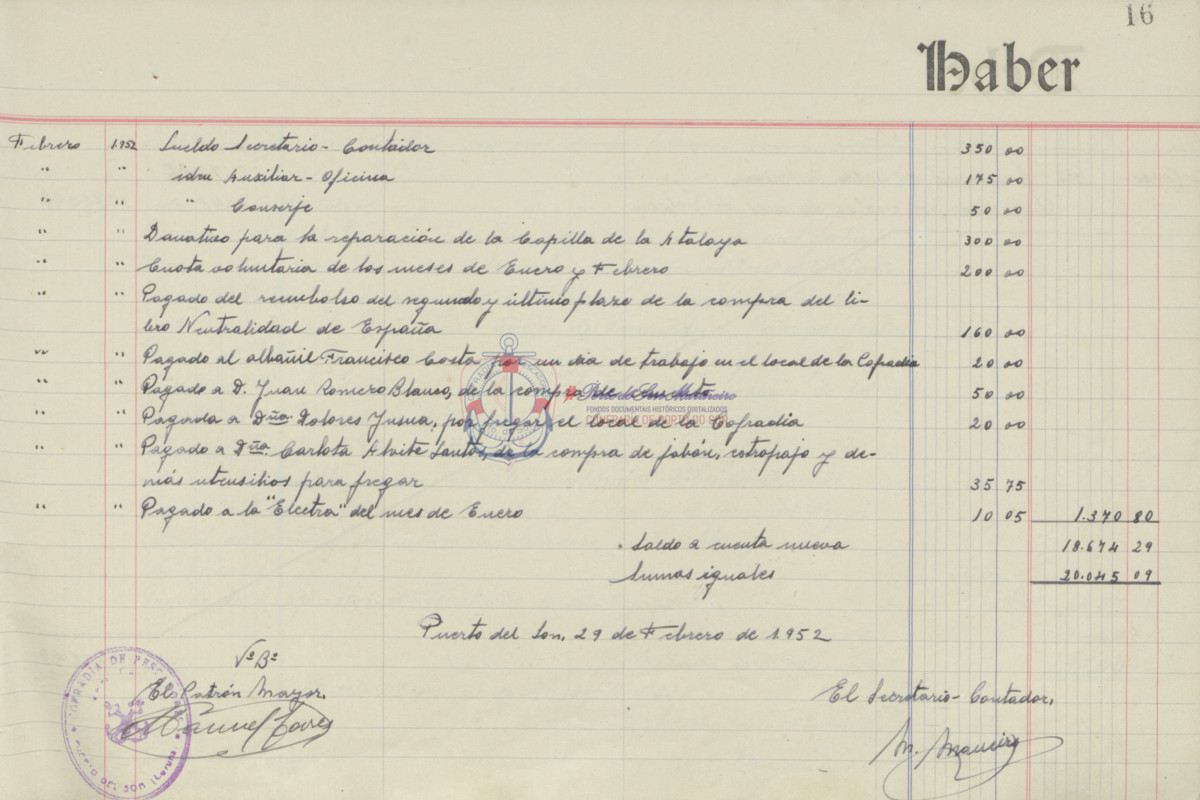 16
Haber
Febrero 1.952 Sueldo Secretario - Contador 350 00
" " idm Auxiliar - Oficina 175 00
" " " Conserje 50 00
" " Donativo para la reparación de la Capilla de la Atalaya 300 00
" " Cuota voluntaria de los meses de Enero y Febrero 200 00
" " Pagado del reembolso del segundo y último plazo de la compra del li-
bro Neutralidad de España 160 00
" " Pagado al albañil Francisco Costa por un dia de trabajo en el local de la Cofradia 20 00
" " Pagado a D. Juan Romero Blanso, de la compra de 50 00
" " Pagada a Dña. Dolores por fregar el local de la Cofradia 20 00
" " Pagado a Dña. Carlota Aloite Santos, de la compra de jabón, estropajo y de-
más utensilios para fregar 35 75
" " Pagado a la "Electra" del mes de Enero 10 05 1.370 80
Saldo a cuenta nueva 18.674 29
Sumas iguales 20.045 09
Puerto del Son, 29 de Febrero de 1.952
Vº Bº
El Patrón Mayor,
El Secretario - Contador,
COFRADIA DE PESCADORES
PUERTO DEL SON (Coruña)
FONDOS DOCUMENTAIS HISTÓRICOS DIXITALIZADOS
CONFRARÍA DE PORTO DO SON